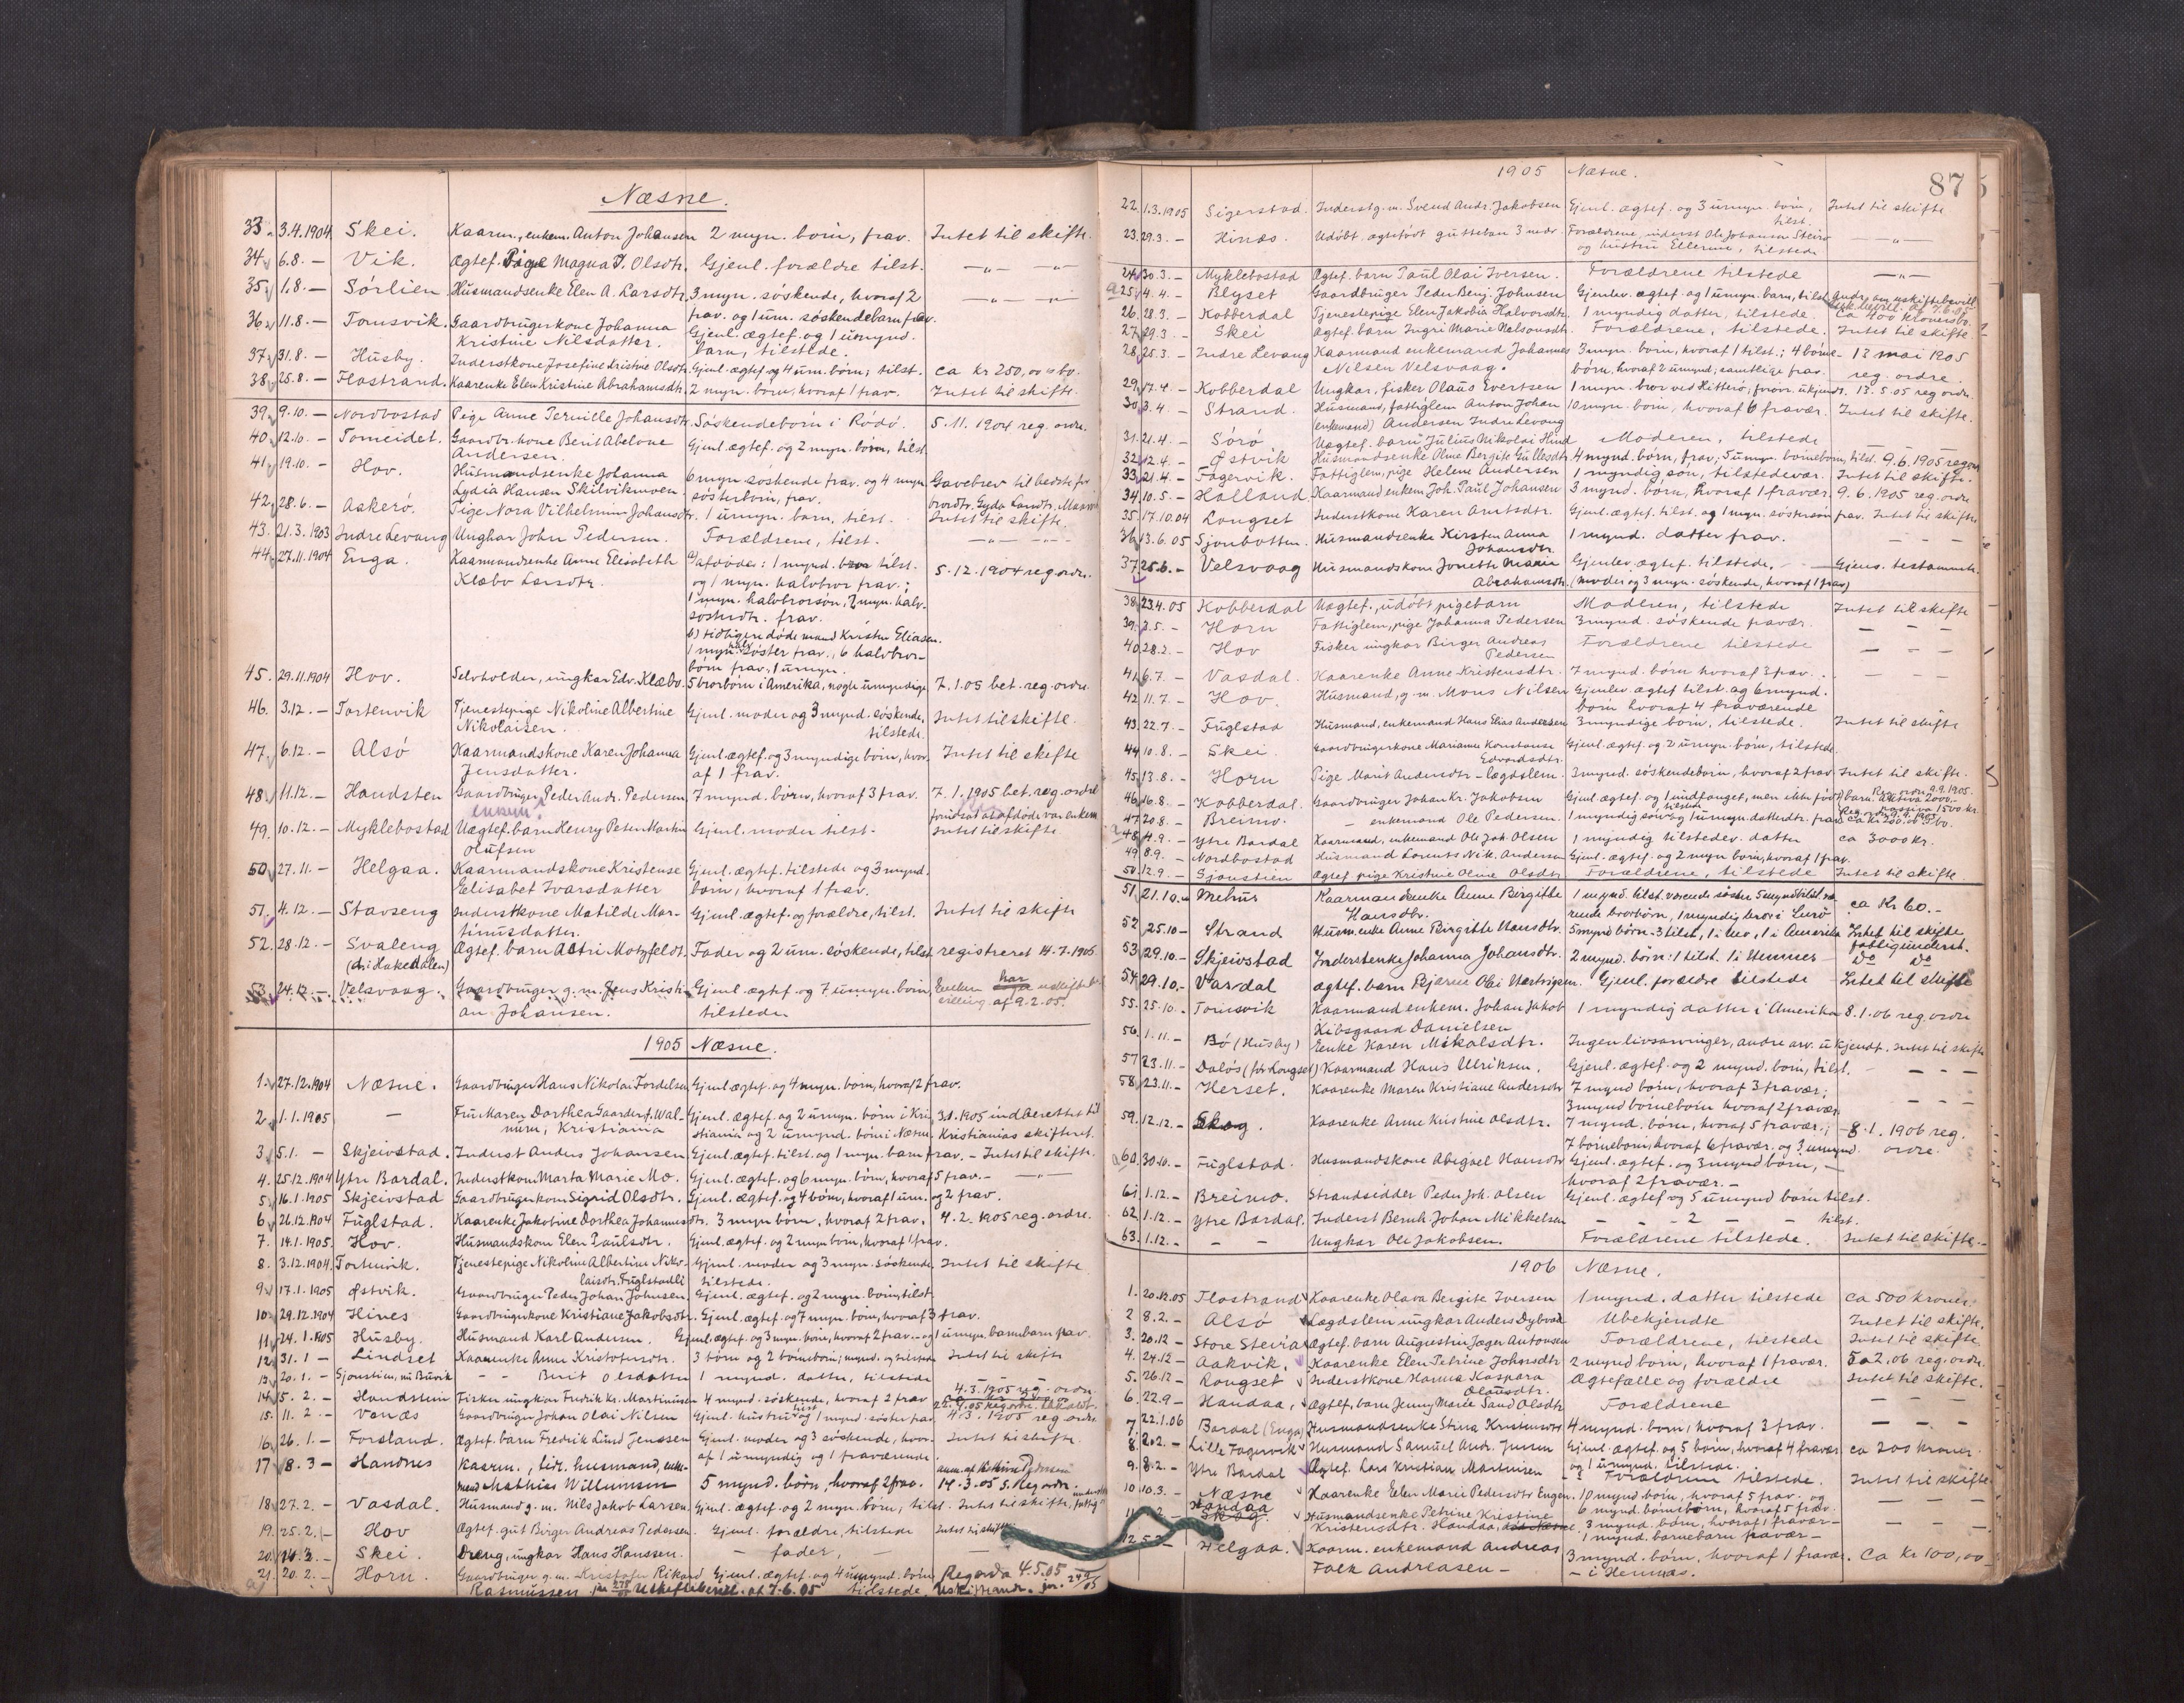 Næsne.
33. 3.4.1904 Skei. Kaarm., enkem. Anton Johansen 2 myn. börn, frav. Intet til skifte.
34 6.8. — Vik. Ægtef. Pige Magna J. Olsdtr. Gjenl. forældre tilst. —„— —„—
35 1.8. — Sörlien Husmandsenke Elen A. Larsdtr. 3 myn. söskende, hvoraf 2 —„— —„—
frav. og 1 um. söskendebarn frav.
36 11.8. — Tomsvik. Gaardbrugerkone Johanna Gjenl. ægtef. og 1 umynd.
Kristine Nilsdatter. barn, tilstede.
37 31.8. — Husby. Inderstkone Josefine Kristine Olsdtr. Gjenl. ægtef. og 4 um. börn; tilst. ca kr 250,00 bo.
38 25.8. — Flostrand. Kaarenke Elen Kristine Abrahamsdtr. 2 myn. börn, hvoraf 1 frav. Intet til skifte.
39 9.10. — Nordbostad Pige Anne Pernille Johansdtr. Söskendebörn i Rödö. 5.11.1904 reg. ordre.
40 12.10. — Tomeidet. Gaardbr. kone Berit Abelone Gjenl. ægtef. og 2 myn. börn, tilst.
Andersen.
41 19.10. — Hov. Husmandsenke Johanna 6 myn söskende frav. og 4 myn Gavebrev til
Lydia Hansen Skilvikmoen. sösterbörn, frav.
42 28.6. — Aakerö. Pige Nora Vilhelmine Johansdtr. 1 umyn. barn, tilst. Intet til skifte.
43. 21.3.1903 Indre Levang Ungkar John Pedersen. Forældrene, tilst. —„— —„—
44 27.11.1904 Enga. Kaarmandsenke Anne Elisabeth a) afdöde: 1 mynd. bror tilst. 5.12.1904 reg. ordre.
Klæbo Larsdtr. og 1 myn. halvbror frav.;
1 myn. halvbrorsön, 2 myn. halv-
sösterdtr. frav.
b) tidligere döde mand Kristen Eliasen.
1 myn. halvsöster frav., 6 halvbror-
börn frav., 1 umyn.
45. 29.11.1904 Hov. Selvholder, ungkar Edv. Klæbo. 5 brorbörn i Amerika, nogle umyndige 7.1.05 bet. reg. ordre
46. 3.12. — Tortenvik Tjenestepige Nikoline Albertine Gjenl. moder og 3 mynd. söskende, Intet til skifte.
Nikolaisen. tilstede.
47. 6.12. — Alsö Kaarmandskone Karen Johanna Gjenl. ægtef. og 3 myndige börn, hvor- Intet til skifte
Jensdatter. af 1 frav.
48 11.12. — Handsten Gaardbruger Peder Andr. Pedersen 7 mynd. börn, hvoraf 3 frav. 7.1.1905 bet. reg. ordre
enkem? forudsat at afdöde var enkem.
49. 10.12. — Myklebostad Uægtef. barn Henry Peter Martin Gjenl. moder tilst. Intet til skifte
Olufsen
50 27.11. — Helgaa. Kaarmandskone Kristense Gjenl. ægtef. tilstede og 3 mynd.
Elisabet Ivarsdatter börn, hvoraf 1 frav.
51. 4.12. — Stavseng Inderstkone Matilde Mar- Gjenl. ægtef. og forældre, tilst. Intet til skifte
tinusdatter.
52. 28.12. — Svaleng Ægtef. barn Astri Motzfeldt Fader og 2 um. söskende, tilst. registreret 14.7.1905
(d. i Hakedalen)
53. 24.12. — Velsvaag. Gaardbruger g.m. Jens Kristi- Gjenl. ægtef. og 7 umyn. börn, Enken har uskiftebe-
an Johansen. tilstede villing af 9.2.05.
1905 Næsne.
1. 27.12.1904 Næsne. Gaardbruger Hans Nikolai Fordelsen Gjenl. ægtef. og 4 myn. börn, hvoraf 2 frav.
2. 1.1.1905 — Fru Maren Dorthea Gaarder f. Wal- Gjenl. ægtef. og 2 umyn. börn i Kri- 3.1.1905 indberettet til
num, Kristiania stiania og 2 umynd. börn i Næsne Kristianias skifteret.
3. 5.1. — Skjeivstad. Inderst Anders Johansen Gjenl. ægtef. tilst. og 1 myn. barn frav. — Intet til skifte.
4. 25.12.1904 Ytre Bardal. Inderstkone Marta Marie Mo. Gjenl. ægtef. og 6 myn. börn, hvoraf 5 frav. —
5. 16.1.1905 Skjeivstad Gaardbrugerkone Sigrid Olsdtr. Gjenl. ægtef. og 4 börn, hvoraf 1 um. og 2 frav.
6. 26.12.1904 Fuglstad. Kaarenke Jakobine Dorthea Johannesdtr. 3 myn börn, hvoraf 2 frav. 4.2.1905 reg. ordre.
7. 14.1.1905. Hov. Husmandskone Elen Paulsdtr. Gjenl. ægtef. og 2 myn börn, hvoraf 1 frav.
8. 3.12.1904. Tortenvik. Tjenestepige Nikoline Albertine Niko- Gjenl. moder og 3 myn. söskende, Intet til skifte
laisdtr. Fuglstadli tilstede.
9. 17.1.1905 Östvik. Gaardbruger Peder Johan Johnsen. Gjenl. ægtef. og 2 myn. börn, tilst.
10. 29.12.1904 Hines Gaardbrugerkone Kristiane Jakobsdtr. Gjenl. ægtef. og 7 myn. börn, hvoraf 3 frav.
11. 24.1.1905 Husby. Husmand Karl Andersen. Gjenl. ægtef. og 3 myn. börn, hvoraf 2 frav. — og 1 umyn. barnebarn frav.
12. 31.1 — Lindset Kaarenke Anne Kristofersdtr. 3 börn og 2 börnebörn; mynd. og tilstede Intet til skifte
13. 20.1. — Sjonstien, nu Buvik — — Berit Olsdatter 1 mynd. datter, tilstede — — —
14. 5.2. — Handstein Fisker ungkar Fredrik Kr. Martinusen 4 mynd. söskende, hvoraf 2 frav. 4.3.1905 reg. ordre
15. 11.2 — Vonæs Gaardbruger Johan Olai Nilsen Gjenl. hustru og 1 mynd. söster frav. 4.3.1905 reg. ordre
16. 26.1. — Forsland. Ægtef. barn Fredrik Lund Jenssen Gjenl. moder og 3 söskende, hvor- Intet til skifte.
af 1 umyndig og 1 fraværende.
17 8.3 — Handnes Kaarm., tidl. husmand, enke-
mand Mathias Willumsen 5 mynd. börn, hvoraf 2 frav. 14.3.05 Reg. ordre
18. 27.2. — Vasdal. Husmand g.m. Nils Jakob Larsen. Gjenl. ægtef. og 2 myn. börn, tilst. Intet til skifte, fattig
19. 25.2. — Hov Ægtef. gut Birger Andreas Pedersen. Gjenl. forældre, tilstede Intet til skifte
20. 14.3. — Skei. Dreng, ungkar Hans Hanssen. — fader, —
21. 20.2. — Horn. Gaardbruger g.m. Kristofer Rikard Gjenl. ægtef. og 4 umynd. börn Regordre 4.5.05
Rasmussen Uskiftebevill. af 7.6.05 tilstede.
1905 Næsne.
87
22. 1.3.1905 Sigerstad. Inderst g.m. Svend Andr. Jakobsen Gjenl. ægtef. og 3 umyn. börn, Intet til skifte
tilst.
23. 29.3. — Hinæs. Udöbt, ægtefödt guttebarn 3 mdr. Forældrene, inderst Ole Johansen Steirö —„—
og hustru Ellerine, tilstede
24. 30.3. — Myklebostad Ægtef. barn Paul Olai Iversen. Forældrene tilstede —„—
25. 4.4. — Blyset Gaardbruger Peder Benj. Johnsen Gjenlev. ægtef. og 1 umyn. barn, tilst. Andr. om uskiftebevill.
26. 28.3. — Kobberdal Tjenestepige Elen Jakobia Halvorsdtr. 1 myndig datter, tilstede. Ca 400 kroners bo.
27. 29.3. — Skei Ægtef. barn Ingri Marie Nelsonsdtr. Forældrene, tilstede. Intet til skifte
28. 25.3. — Indre Levang Kaarmand enkemand Johannes 3 myn. börn, hvoraf 1 tilst.; 4 börne- 13 mai 1905
Nilsen Velsvaag. börn, hvoraf 2 umynd; samtlige frav. reg. ordre.
29. 17.4. — Kobberdal Ungkar, fisker Olaus Evertsen 1 myn. bror ved Hitterö; forövr. ukjendt. 13.5.05 reg. ordre.
30. 3.4. — Strand. Husmand, fattiglem Anton Johan 10 myn. börn, hvoraf 6 fravær. Intet til skifte.
(enkemand) Andersen Indre Levang
31. 21.4. — Sörö Uægtef. barn Julius Nikolai Hind Moderen, tilstede —
32. 12.4. — Östvik Husmandsenke Oline Bergite Gullesdtr. 4 mynd. börn, frav; 5 umyn. börnebörn, tilst. 9.6.1905 reg. or.
33. 21.4. — Fagervik. Fattiglem, pige Helene Andersen 1 myndig sön, tilstedevær. Intet til skifte.
34 10.5. — Holland Kaarmand enkem. Joh. Paul Johansen 3 mynd. börn, hvoraf 1 fravær. 9.6.1905 reg. ordre
35. 17.10.04 Longset Inderstkone Karen Arntsdtr. Gjenl. ægtef. tilst. og 1 myn. söstersön frav. Intet til skifte
36. 13.6.05 Sjonbotten. Husmandsenke Kirsten Anna 1 mynd. datter frav. — — —
Johansdtr.
37. 25.6. — Velsvaag Husmandskone Jonette Maria Gjenlev. ægtef. tilstede. — Gjens. testamente.
Abrahamsdtr. (moder og 3 myn. söskende, hvoraf 1 frav)
38. 23.4.05 Kobberdal Uægtef., udöbt pigebarn Moderen, tilstede Intet til skifte
39. 3.5. — Horn Fattiglem, pige Johanna Pedersen 3 mynd. söskende fravær. — — —
40. 28.2. — Hov Fisker ungkar Birger Andreas Forældrene tilstede — — —
Pedersen
41. 6.7. — Vasdal. Kaarenke Anne Kristensdtr. 7 mynd. börn hvoraf 3 frav. — — —
42. 11.7. — Hov. Husmand, g.m. Mons Nilsen Gjenlev. ægtef tilst. og 6 mynd.
börn hvoraf 4 fraværende
43. 22.7. — Fuglstad Husmand, enkemand Hans Elias Andersen 3 myndige börn, tilstede. Intet til skifte
44. 10.8. — Skei. Gaardbrugerkone Marianne Konstanse Gjenl. ægtef. og 2 umyn. börn, tilstede.
Edvardsdtr.
45. 13.8. — Horn Pige Marit Andersdtr — lægdslem. 3 mynd. söskendebörn, hvoraf 2 frav. Intet til skifte.
46. 16.8. — Kobberdal. Gaardbruger Johan Kr. Johansen Gjenl. ægtef. og 1 undfanget, men ikke födt barn. Reg. ordre 9.9.1905. Aktiva 2000.— passiva 1500 kr.
47 20.8. — Breimo. — enkemand Ole Pedersen. 1 myndig sön og 1 umyn. datterdtr. frav. ca kr 200.00 bo.
48. 4.9. — Ytre Bardal Kaarmand, enkemand Ole Joh. Olsen 1 myndig tilstedev. datter ca 3000 kr.
49 8.9. — Nordbostad Husmand Lorents Nik. Andersen Gjenl. ægtef. og 2 myn börn, hvoraf 1 frav.
50. 12.9. — Sjonstien Ægtef. pige Kristine Oline Olsdtr Forældrene, tilstede Intet til skifte.
51. 21.10. — Mehus Kaarmandsenke Anne Birgitte 1 mynd. tilst. værende söster 5 mynd tilst. væ- ca Kr 60.—
Hansdtr. rende brorbörn, 1 myndig bror i Lurö
52. 25.10 — Strand Husm.enke Anne Birgitte Hansdtr. 5 mynd börn — 3 tilst., 1 i Mo, 1 i Amerika Intet til skifte
fattigunderst.
53. 29.10. — Skjeivstad Inderstenke Johanna Johansdtr. 2 mynd. börn: 1 tilst. 1 i Hemnes Do Do
54. 29.10. — Vasdal ægtef. barn Bjarne Olai Hartvigsen. Gjenl. forældre tilstede Intet til skifte
55. 25.10. — Tomsvik Kaarmand enkem. Johan Jakob 1 myndig datter i Amerika 8.1.06 reg. ordre
Kibsgaard Danielsen
56. 1.11. — Bö (Husby) Enke Karen Mikalsdtr. Ingen livsarvinger, andre arv. ukjendt. Intet til skifte
57 23.11. — Dalös (för Longset) Kaarmand Hans Ulriksen. Gjenl. ægtef. og 2 mynd. börn, tilst. — — —
58. 23.11. — Herset. Kaarenke Maren Kristiane Andersdtr 7 mynd börn, hvoraf 3 fravær;
3 mynd börnebörn hvoraf 2 fravær. — — —
59. 12.12. — Skog. Kaarenke Anne Kristine Olsdtr. 7 mynd. börn, hvoraf 5 fravær.; 8.1.1906 reg.
7 börnebörn, hvoraf 6 fravær. og 3 umynd. ordre.
60. 30.10. — Fuglstad. Husmandskone Abigael Hansdtr Gjenl. ægtef. og 3 mynd börn, —
hvoraf 2 fravær. —
61. 1.12. — Breimo. Strandsidder Peder Joh. Olsen Gjenl. ægtef og 5 umynd börn tilst.
62. 1.12. — Ytre Bardal. Inderst Bernh. Johan Mikkelsen — — 2 — tilst.
63. 1.12. — — — Ungkar Ole Jakobsen. Forældrene tilstede. Intet til skifte. —
1906 Næsne.
1. 20.12.05 Flostrand Kaarenke Olava Bergite Iversen 1 mynd. datter tilstede ca 500 kroner.
2 8.2. — Alsö Lægdslem ungkar Anders Dybvad Ubekjendte Intet til skifte.
3. 20.12 — Store Stenra Ægtef. barn Augustin Jæger Antonsen Forældrene, tilstede Intet til skifte
4. 24.12 — Aakvik. Kaarenke Elen Petrine Johnsdtr 2 mynd börn, hvoraf 1 fravær. 5.2.06 reg. ordre.
5. 26.12 — Longset Inderstkone Hanna Kaspara Ægtefælle og forældre Intet til skifte.
Olausdtr.
6. 22.9 — Handaa. Ægtef. barn Jenny Marie Sand Olsdtr Forældrene — — —
7. 22.1.06 Bardal (Enga) Husmandsenke Stina Kristensdtr 4 mynd. börn, hvoraf 3 frav. — — —
8. 2.2. — Lille Fagervik Husmand Samuel Andr. Jensen Gjenl. ægtef. og 5 börn, hvoraf 4 fravær ca 200 kroner.
og 1 umynd. tilstede.
9. 8.2. — Ytre Bardal Ægtef. Lars Kristian Martinisen Forældrene tilstede. Intet til skifte
10 10.3. — Næsne Kaarenke Elen Marie Pedersdtr Engen. 10 mynd börn, hvoraf 5 frav. og — — —
6 mynd. börnebörn, hvoraf 5 frav.
Handaa Husmandsenke Petrine Kristine 3 mynd. börn, hvoraf 1 fravær —
Skog. Kristensdtr. Handaa, 1 mynd. barnebarn fravær —
12 5.2 — Helgaa. Kaarm. enkemand Andreas 3 mynd. börn, hvoraf 1 fravær. Ca Kr 100,00
Falk Andreasen — — i Hemnæs.